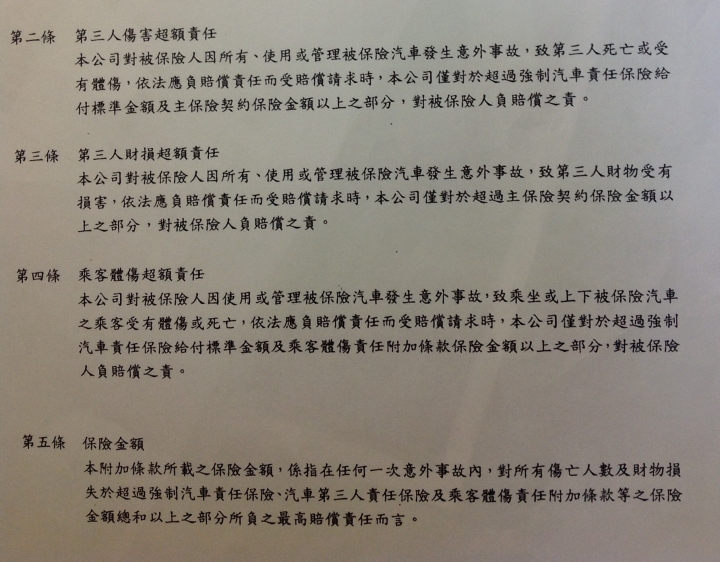 第二條 第三人傷害超額責任
本公司對被保險人因所有、使用或管理被保險汽車發生意外事故，致第三人死亡或受
有體傷，依法應負賠償責任而受賠償請求時，本公司僅對於超過強制汽車責任保險給
付標準金額及主保險契約保險金額以上之部分，對被保險人負賠償之責。
第三條 第三人財損超額責任
本公司對被保險人因所有、使用或管理被保險汽車發生意外事故，致第三人財物受有
損害，依法應負賠償責任而受賠償請求時，本公司僅對於超過主保險契約保險金額以
上之部分，對被保險人負賠償之責。
第四條 乘客體傷超額責任
本公司對被保險人因使用或管理被保險汽車發生意外事故，致乘坐或上下被保險汽車
之乘客受有體傷或死亡，依法應負賠償責任而受賠償請求時，本公司僅對於超過強制
汽車責任保險給付標準金額及乘客體傷責任附加條款保險金額以上之部分，對被保險
人負賠償之責。
第五條 保險金額
本附加條款所載之保險金額，係指在任何一次意外事故內，對所有傷亡人數及財物損
失於超過強制汽車責任保險、汽車第三人責任保險及乘客體傷責任附加條款等之保險
金額總和以上之部分所負之最高賠償責任而言。